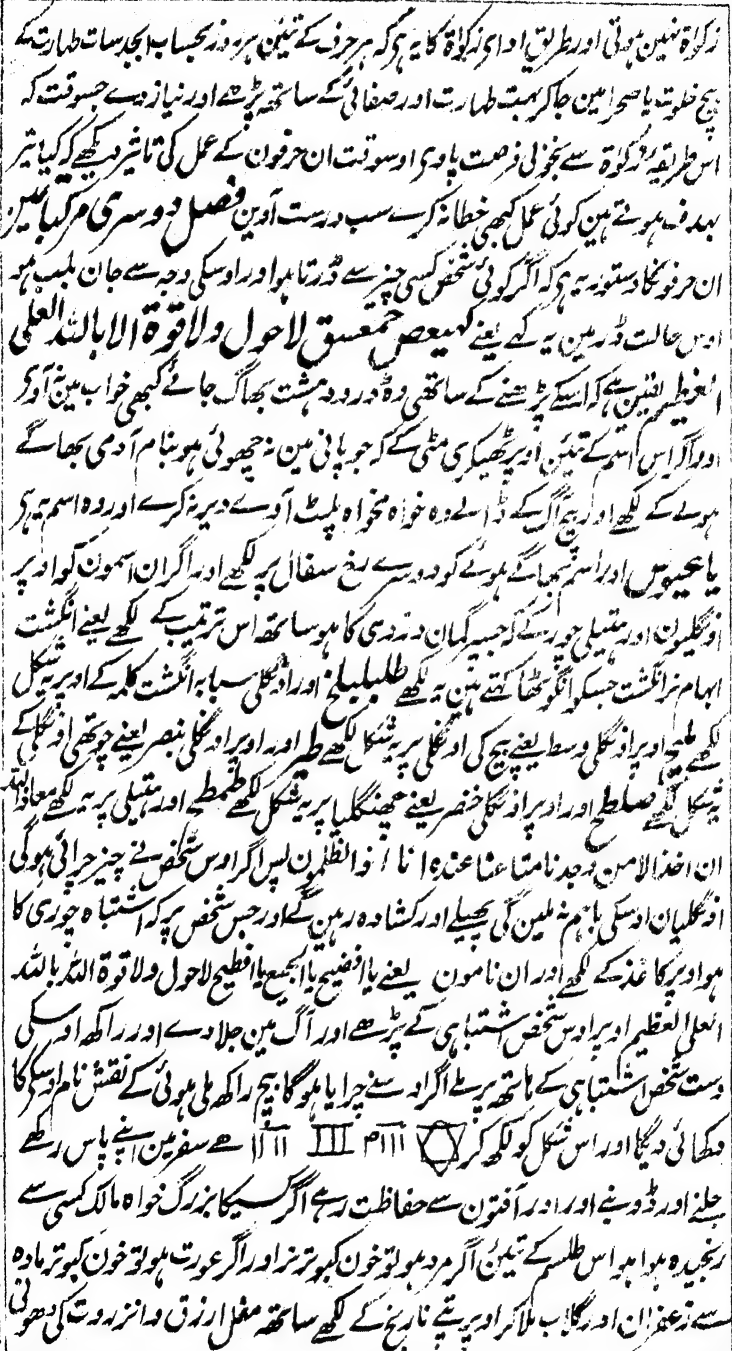 زکواۃ نہین ہوتی اور طریق ادای زکواۃ کا یہ ہی کہ ہر حرف کے تیئن ہر روز بحساب ابجد سات طہارت کے
بیچ خلوت یا صحرا مین جا کر بہت طہارت اور صفائی کے ساتھ پڑھے اور نیاز دے جسوقت کہ
اس طریقہ زکوٰۃ سے بخوبی فرصت پاوی اوسوقت ان حرفون کے عمل کی تاثیر دیکھے کہ کیا تیر
بہدف ہوتے ہین کوئی عمل کبھی خطا نہ کرے سب درست آوین فصل دوسری مرکبا تمین
ان حرفونکا دستور یہ ہی کہ اگر کوئی شخص کسی چیز سے ڈرتا ہو اور اوسکی وجہ سے جان بلب ہو
اوس حالت ڈر مین یہ کہے یعنے کہیعص حمعسق لا حول ولا قوۃ الا باللہ العلی
العظیم یقین ہے کہ اسکے پڑھنے کے ساتھی وہ ڈر و دہشت بھاگ جائے کبھی خواب مین نہ آوی
اور اگر اس اسم کے تیئن اوپر ٹھیکری مٹی کے کہ جو پانی مین نہ چھوئی ہو بنام آدمی بھاگے
ہوئے کے لکھے اور بیچ آگ کے ڈالے وہ خواہ مخواہ پلٹ آوے دیر نہ کرے اور وہ اسم یہ ہی
یا اور اسم بھاگے ہوئے کو دوسرے رخ سفال پر لکھے اور اگر ان اسمون کو اوپر
اونگلیون اور ہتیلی چور کے کہ جسپر گمان دزدی کا ہو ساتھ اس ترتیب کے لکھے یعنے انگشت
ابہام نر انگشت جسکو انگوٹھا کہتے ہین یہ لکھے اور اونگلی سبابہ انگشت کلمہ کے اوپر یہ شکل
لکھے اوپر اونگلی وسطا یعنے بیچ کی اونگلی پر یہ شکل لکھے اور اوپر اونگلی بنصر یعنے چوتھی اونگلی کے
یہ شکل لکھے اور اوپر اونگلی خنصر یعنے چھنگلیا پر یہ شکل لکھے اور ہتیلی پر یہ لکھے معاذ اللہ
ان اخذ الا من وجدنا متاعنا عندہ انا اذا لظلمون پس اگر اوس شخص نے چیز چرائی ہوگی
اونگلیان اوسکی باہم نہ ملین گی پھیلے اور کشادہ رہین گے اور جس شخص پر کہ اشتباہ چوری کا
ہو اوپر کاغذ کے لکھے اور ان نامون یعنے یا لا حول ولا قوۃ اللہ باللہ
العلی العظیم اوپر اوس شخص اشتباہی کے پڑھے اور آگ مین جلا دے اور راکھ اوسکی
دست شخص اشتباہی کے ہاتھ پر ملے اگر اوسنے چرایا ہوگا بیچ راکھ ملی ہوئی کے نقش نام اوسکر کا
دکھائی دیگا اور اس شکل کو لکھ کر سفر مین اپنے پاس رکھے
جلنے اور ڈوبنے اور اور آفتون سے حفاظت رہے اگر کسیکا بزرگ خواہ مالک کسی سے
رنجیدہ ہوا ہو اس طلسم کے تیئن اگر مرد ہو تو خون کبوتر نر اور اگر عورت ہو تو خون کبوتر مادہ
سے زعفران اور گلاب ملا کر اوپر پتے نارنج کے لکھے ساتھ مقل ارزق و انزروت کی دھونی